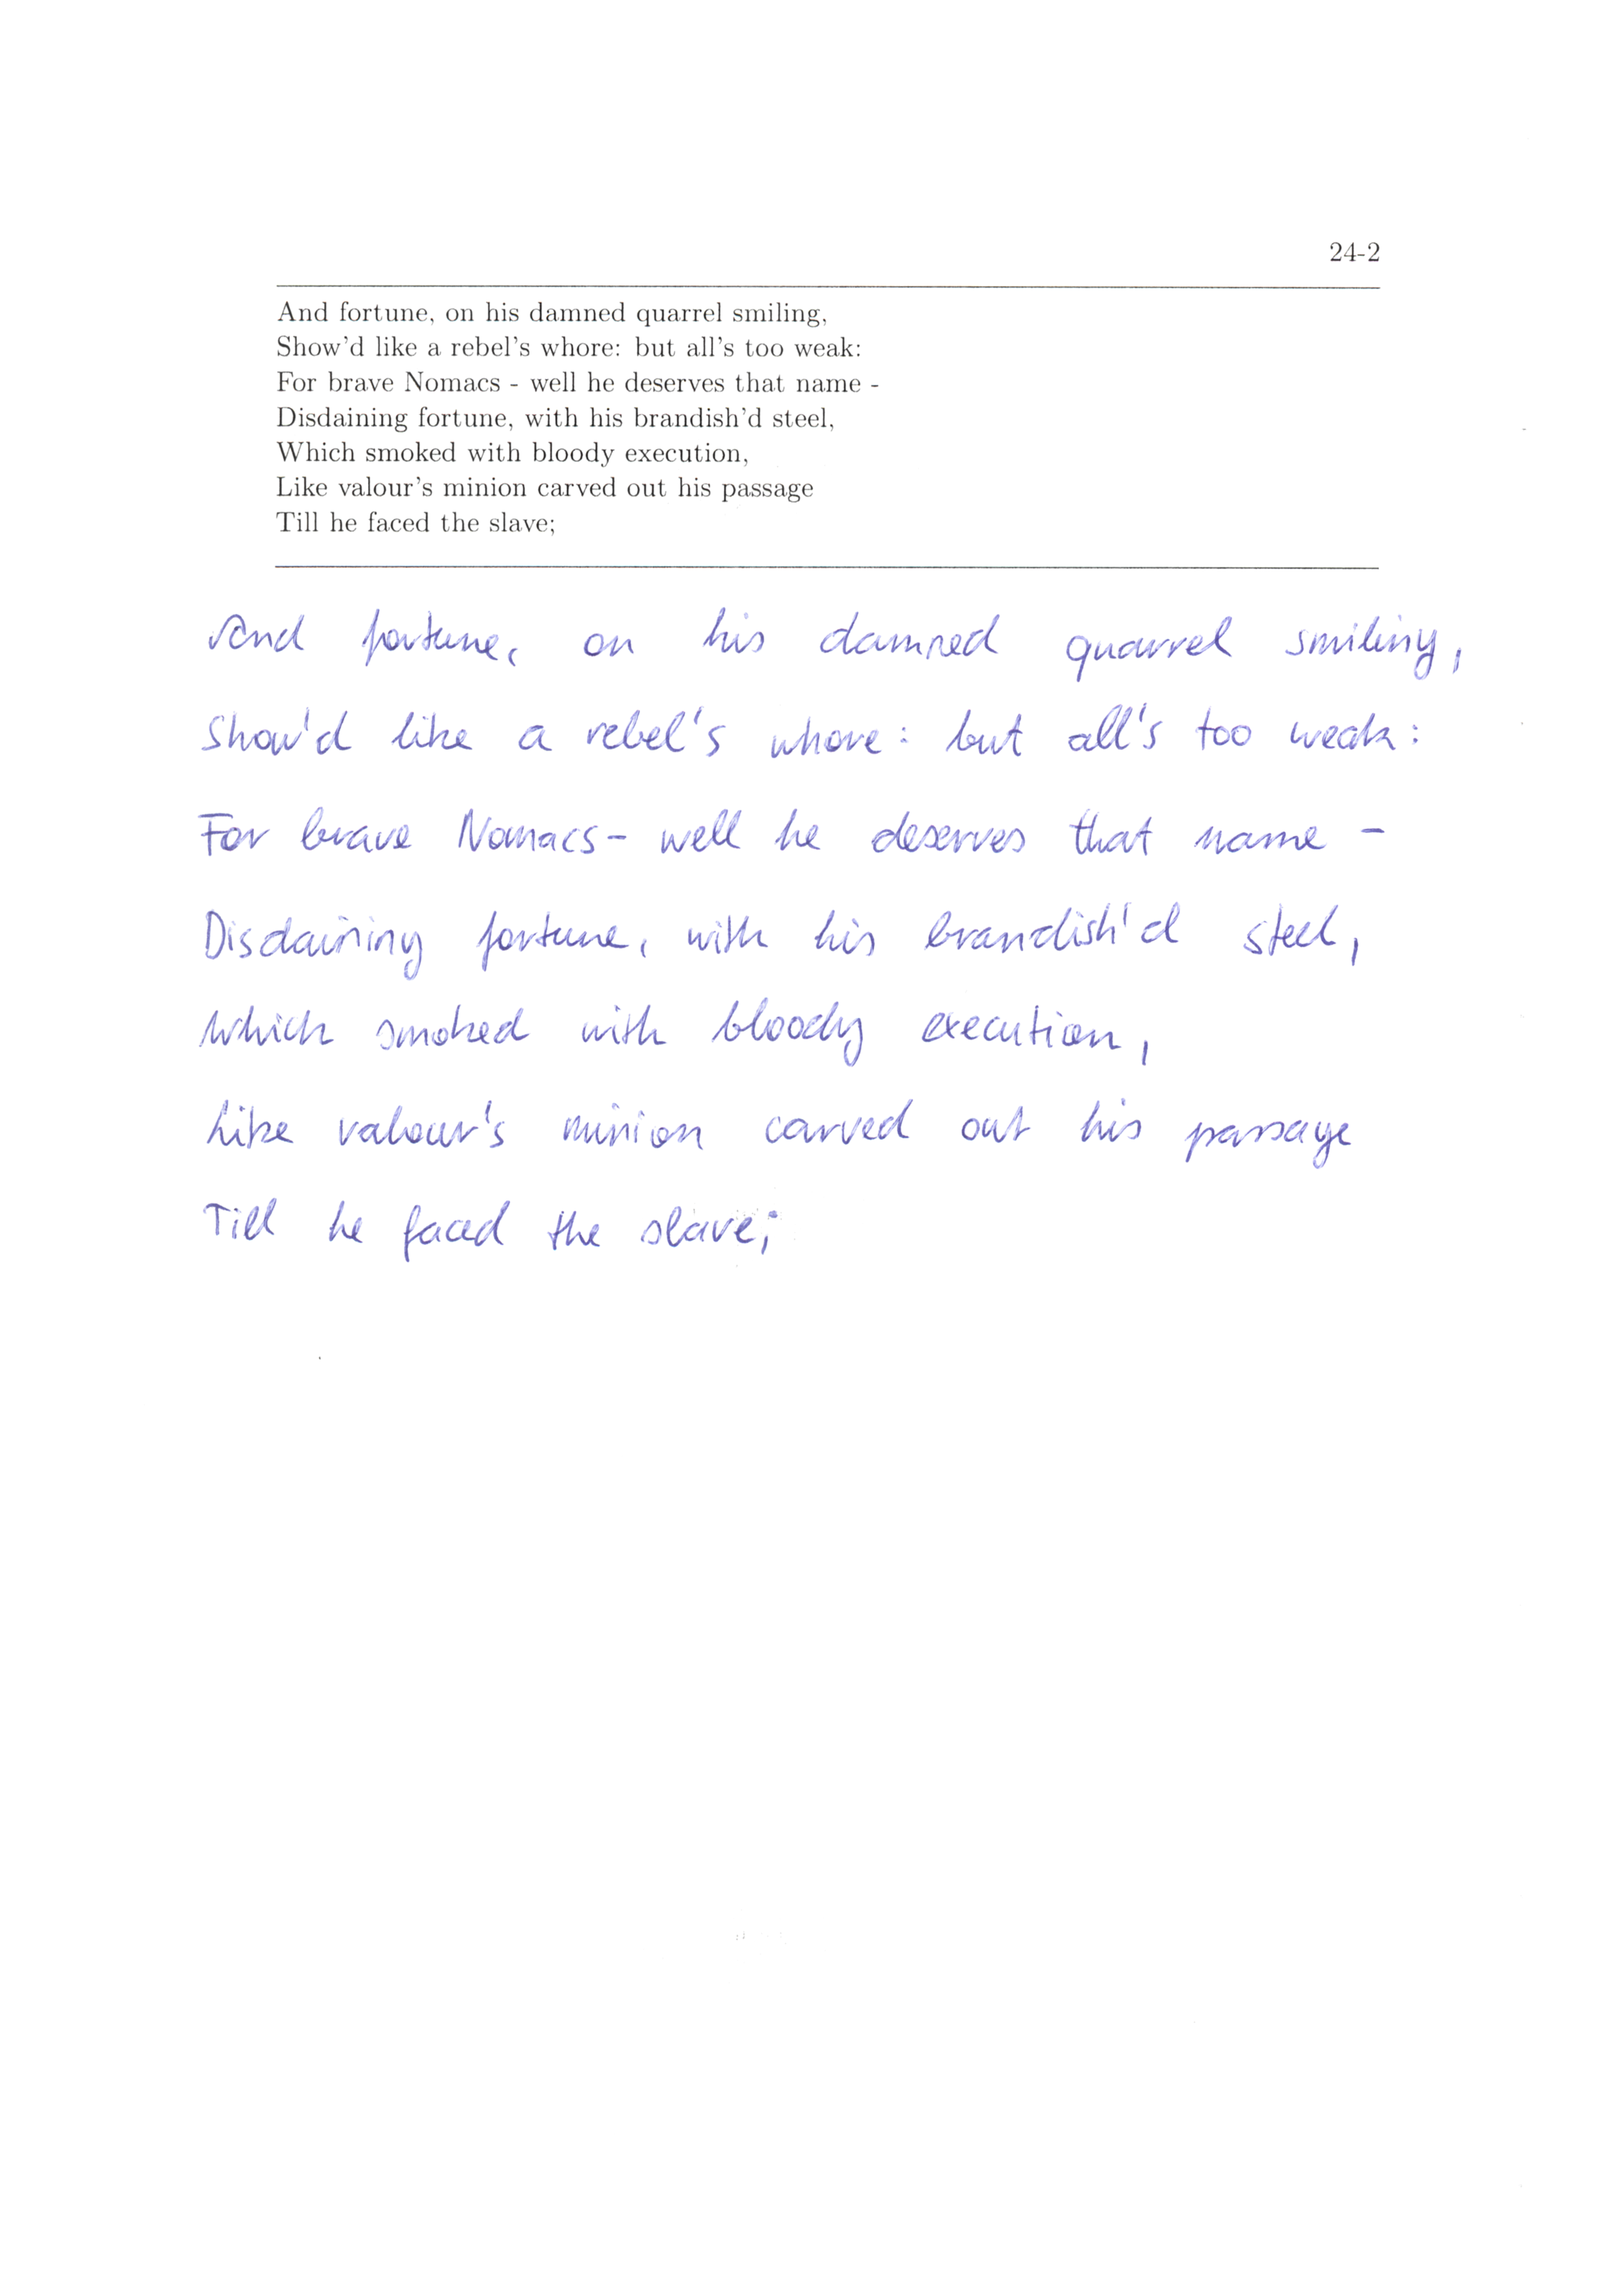 24-2
And fortune, on his damned quarrel smiling,
Show'd like a rebel's whore: but all's too weak:
For brave Nomacs - well he deserves that name -
Disdaining fortune, with his brandish'd steel,
Which smoked with bloody execution,
Like valour's minion carved out his passage
Till he faced the slave;
And fortune, on his damned quarrel smiling,
Show'd like a rebel's whore: but all's too weak:
For brave Nomacs - well he deserves that name -
Disdaining fortune, with his brandish'd steel,
Which smoked with bloody execution,
Like valour's minion carved out his passage
Till he faced the slave;